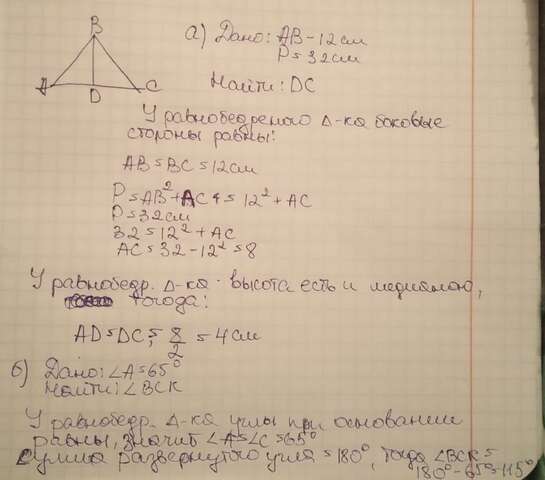 B
а) Дано: AB - 12 см
P = 32 см
A
D
C
Найти: DC
У равнобедреного Δ-ка боковые
стороны равны:
AB = BC = 12 см
P = AB² + AC = 12² + AC
P = 32 см
32 = 12² + AC
AC = 32 - 12² = 8
У равнобедр. Δ-ка высота есть и медианою,
тогда:
AD = DC = 8/2 = 4 см
б) Дано: ∠A = 65°
Найти: ∠BCK
У равнобедр. Δ-ка углы при основании
равны, значит ∠A = ∠C = 65°
Сумма развернутого угла = 180°, тогда ∠BCK =
180° - 65° = 115°